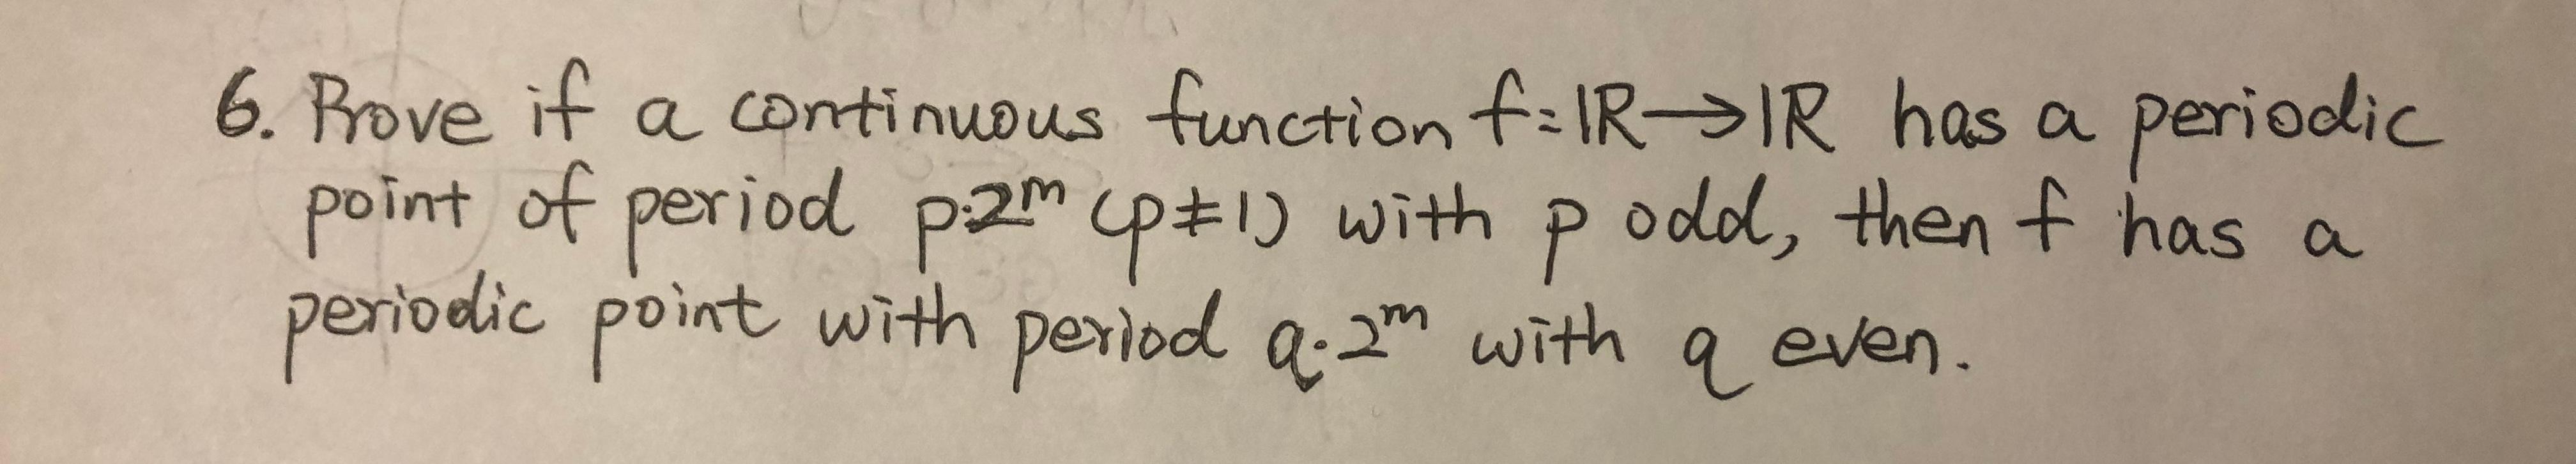 6. Prove if a continuous function f:ℝ→ℝ has a periodic
point of period p·2^m (p≠1) with p odd, then f has a
periodic point with period q·2^m with q even.